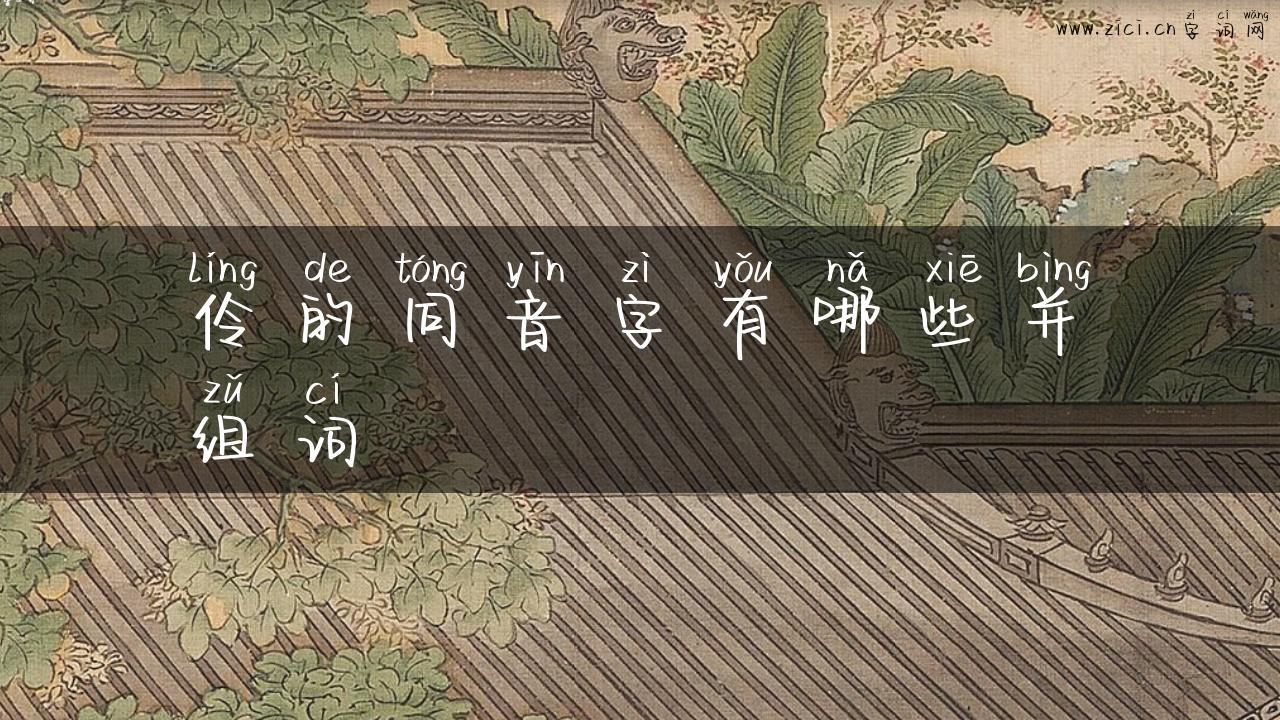 zì cí wǎng
www.zici.cn 字词网
líng de tóng yīn zì yǒu nǎ xiē bìng
伶的同音字有哪些并
zǔ cí
组词